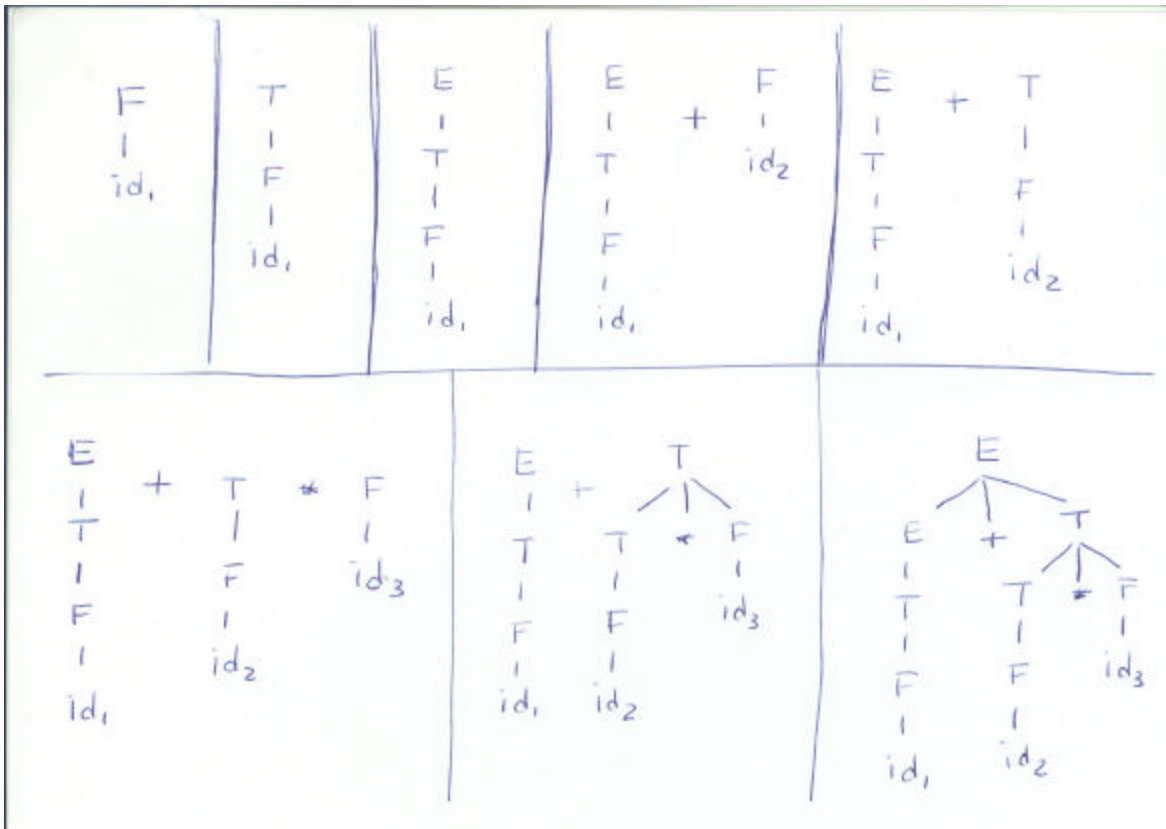 F
id₁
T
F
id₁
E
T
F
id₁
E + F
T id₂
F
id₁
E + T
T F
F id₂
id₁
E + T * F
T F id₃
F id₂
id₁
E + T
T T * F
F F id₃
id₁ id₂
E
E + T
T T * F
F F id₃
id₁ id₂